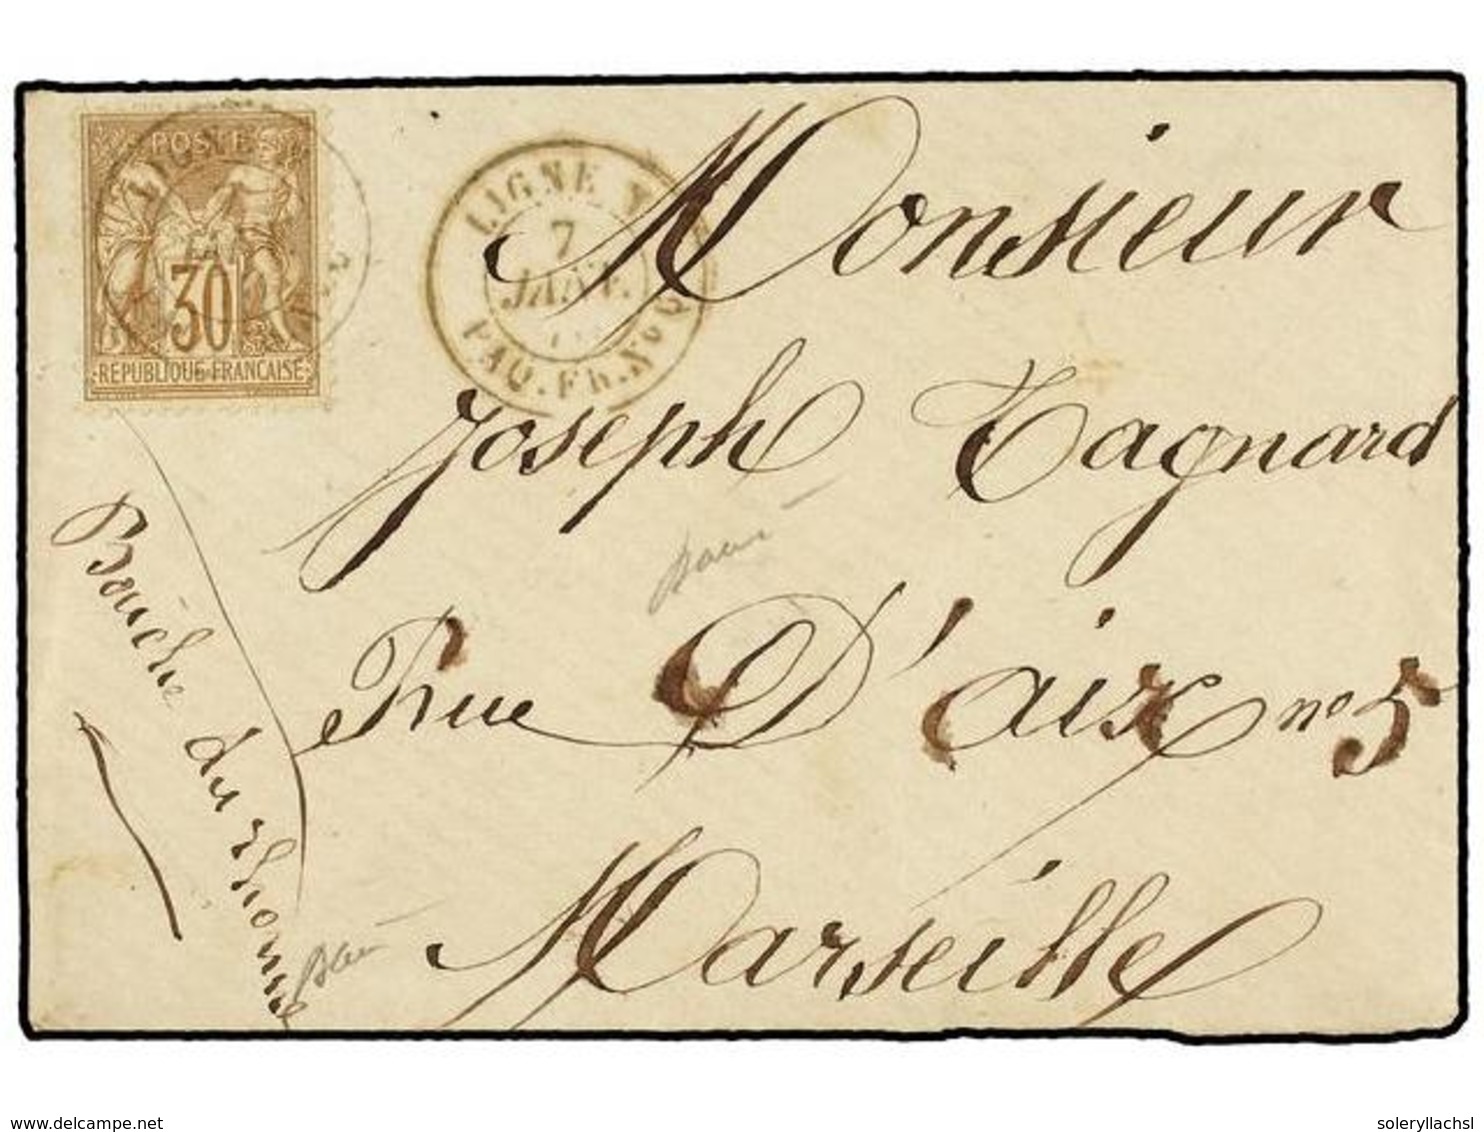 POSTES
30
REPUBLIQUE FRANCAISE
LIGNE N
7
JANV.
PAQ. FR. No
Monsieur
Joseph Tagnard
Rue D'aix no 5
Marseille
Bouche du Rhone
delcampe.net
soleryllachsl